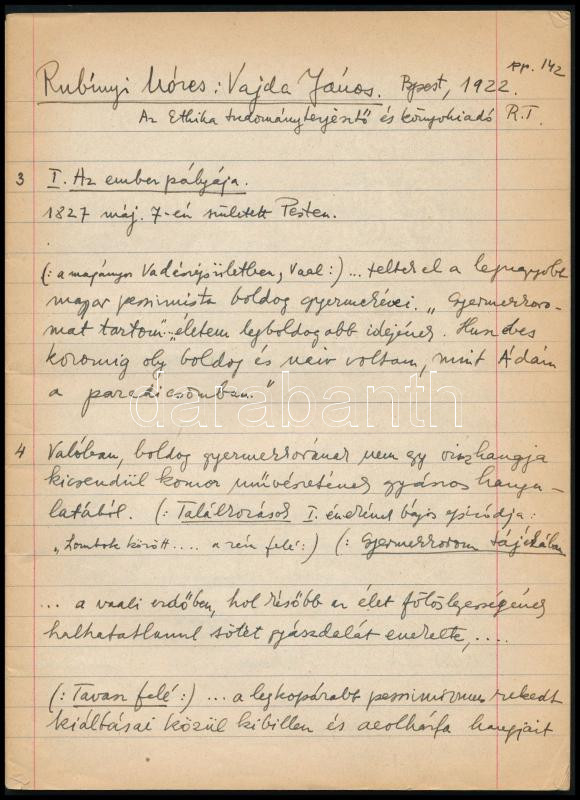 pp. 142
Rubinyi Mózes: Vajda János. Bpest, 1922.
Az Ethika tudományterjesztő és könyvkiadó R.T.
3 I. Az ember pályája.
1827 máj. 7-én született Pesten.
(: a magányos Vadászépületben, Vaal :) ... teltek el a legnagyobb
magyar pessimista boldog gyermekévei. „Gyermekkoro-
mat tartom" „életem legboldogabb idejének. Husz éves
koromig oly boldog és naiv voltam, mint Ádám
a paradicsomban."
4 Valóban, boldog gyermekkorának nem egy visszhangja
kicsendül komor művészetének gyászos hangu-
latából. (: Találkozások I. énekének bájos epizódja:
„Lombok között .... a zén felé :) (: Gyermekkorom tájékán
... a vaali erdőben, hol később az élet fölöslegességének
halhatatlanul sötét gyászdalát énekelte, ....
(: Tavasz felé :) ... a legkopárabb pessimizmus rekedt
kiáltásai közül kibillen és aeolhárfa hangjait
darabanth